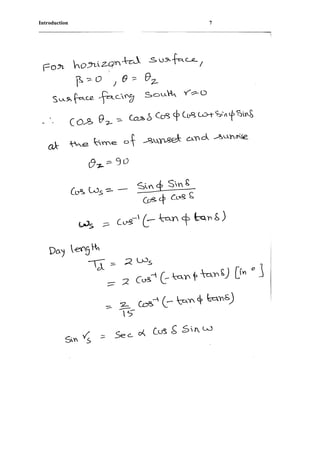 Introduction 7
For horizontal surface,
β = 0 , θ = θz
Surface facing South γ=0
∴ Cos θz = Cos δ Cos φ Cos ω + Sin φ Sin δ
at the time of sunset and sunrise
θz = 90
Cos ωs = - Sin φ Sin δ / Cos φ Cos δ
ωs = Cos⁻¹ (- tan φ tan δ)
Day length
Td = 2 ωs
= 2 Cos⁻¹ (- tan φ tan δ) [in °]
= 2/15 Cos⁻¹ (- tan φ tan δ)
Sin γs = Sec α Cos δ Sin ω